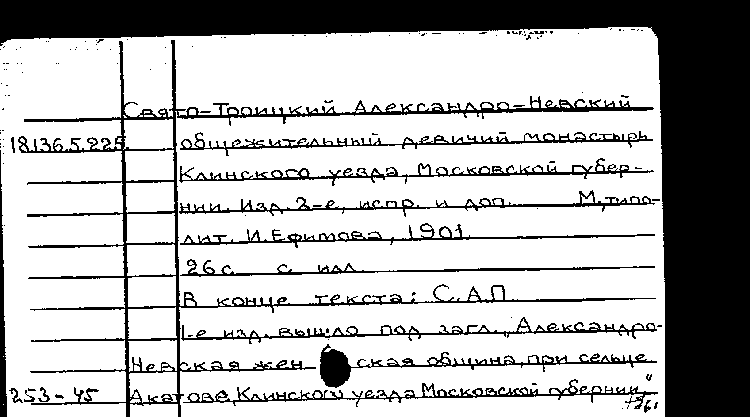 Свято-Троицкий Александро-Невский
18.136.5.225 общежительный девичий монастырь
Клинского уезда, Московской губер-
нии. Изд. 2-е, испр. и доп. М, типо-
лит. И. Ефимова, 1901.
26 с. с илл.
В конце текста: С.А.П
1-е изд. вышло под загл. "Александро-
Невская женская община, при сельце
253-45 Акатове, Клинского уезда Московской губернии"